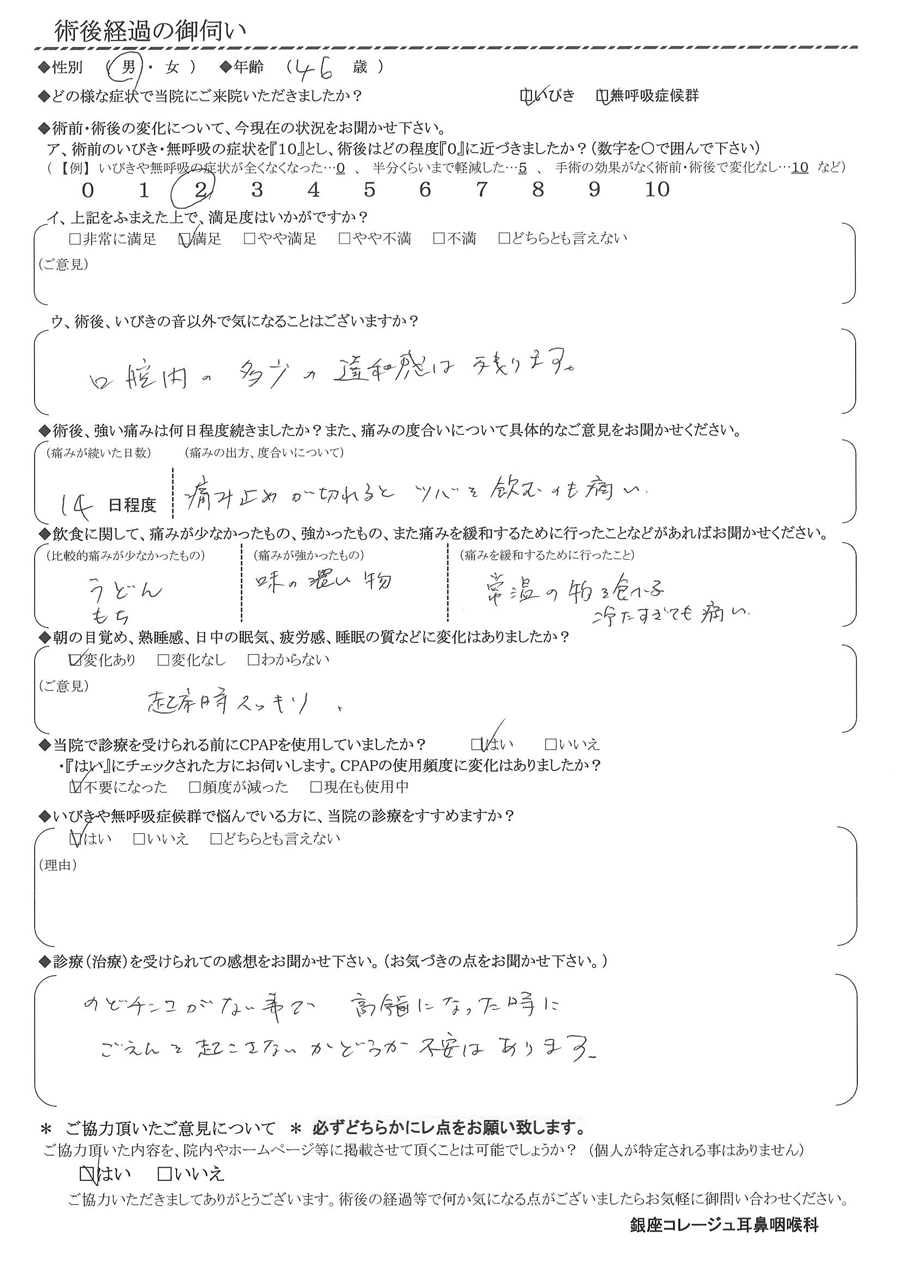 術後経過の御伺い
◆性別 ( 男 ・ 女 ) ◆年齢 ( 46 歳 )
◆どの様な症状で当院にご来院いただきましたか? ☑いびき ☑無呼吸症候群
◆術前・術後の変化について、今現在の状況をお聞かせ下さい。
ア、術前のいびき・無呼吸の症状を『10』とし、術後はどの程度『0』に近づきましたか?(数字を〇で囲んで下さい)
(【例】 いびきや無呼吸の症状が全くなくなった…0 、 半分くらいまで軽減した…5 、 手術の効果がなく術前・術後で変化なし…10 など)
0 1 2 3 4 5 6 7 8 9 10
イ、上記をふまえた上で、満足度はいかがですか?
□非常に満足 ☑満足 □やや満足 □やや不満 □不満 □どちらとも言えない
(ご意見)
ウ、術後、いびきの音以外で気になることはございますか?
口腔内の多少の違和感は残ります。
◆術後、強い痛みは何日程度続きましたか?また、痛みの度合いについて具体的なご意見をお聞かせください。
(痛みが続いた日数) (痛みの出方、度合いについて)
14 日程度 痛み止めが切れるとツバを飲むのも痛い.
◆飲食に関して、痛みが少なかったもの、強かったもの、また痛みを緩和するために行ったことなどがあればお聞かせください。
(比較的痛みが少なかったもの) (痛みが強かったもの) (痛みを緩和するために行ったこと)
うどん 味の濃い物 常温の物を食べる
もち 冷たすぎても痛い.
◆朝の目覚め、熟睡感、日中の眠気、疲労感、睡眠の質などに変化はありましたか?
☑変化あり □変化なし □わからない
(ご意見)
起床時スッキリ.
◆当院で診療を受けられる前にCPAPを使用していましたか? ☑はい □いいえ
・『はい』にチェックされた方にお伺いします。CPAPの使用頻度に変化はありましたか?
☑不要になった □頻度が減った □現在も使用中
◆いびきや無呼吸症候群で悩んでいる方に、当院の診療をすすめますか?
☑はい □いいえ □どちらとも言えない
(理由)
◆診療(治療)を受けられての感想をお聞かせ下さい。(お気づきの点をお聞かせ下さい。)
のどチンコがない事で 高齢になった時に
ごえんを起こさないかどうか不安はあります。
＊ ご協力頂いたご意見について ＊ 必ずどちらかにレ点をお願い致します。
ご協力頂いた内容を、院内やホームページ等に掲載させて頂くことは可能でしょうか? (個人が特定される事はありません)
☑はい □いいえ
ご協力いただきましてありがとうございます。術後の経過等で何か気になる点がございましたらお気軽に御問い合わせください。
銀座コレージュ耳鼻咽喉科